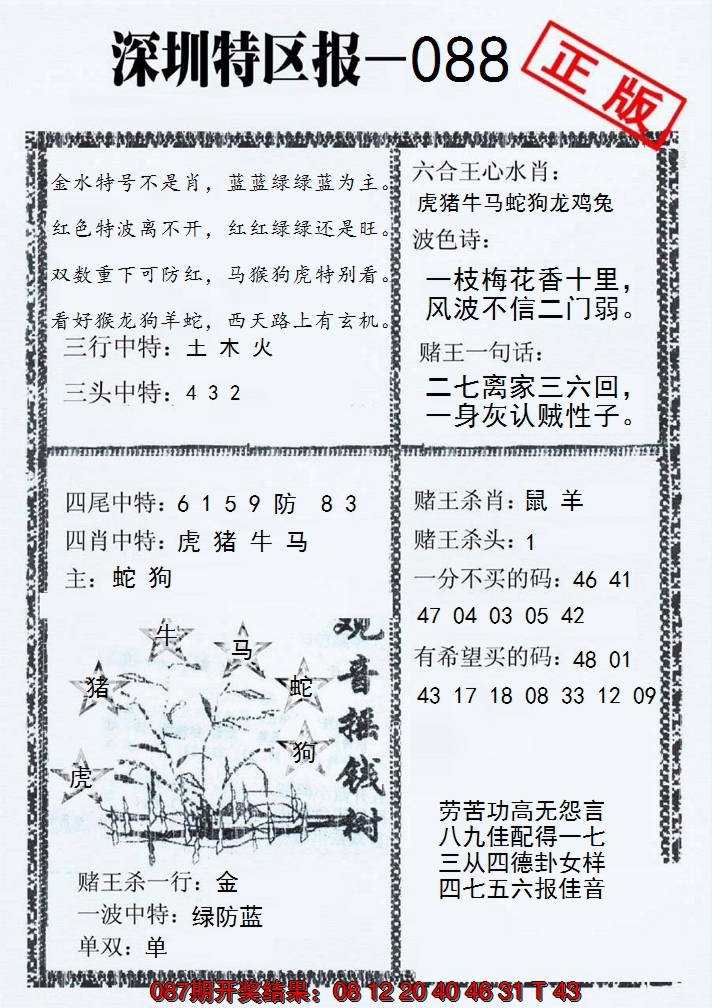 深圳特区报－088
正版
金水特号不是肖，蓝蓝绿绿蓝为主。
红色特波离不开，红红绿绿还是旺。
双数重下可防红，马猴狗虎特别看。
看好猴龙狗羊蛇，西天路上有玄机。
三行中特：土 木 火
三头中特：4 3 2
六合王心水肖：
虎猪牛马蛇狗龙鸡兔
波色诗：
一枝梅花香十里，
风波不信二门弱。
赌王一句话：
二七离家三六回，
一身灰认贼性子。
四尾中特：6 1 5 9 防 8 3
四肖中特：虎 猪 牛 马
主：蛇 狗
牛
马
猪
蛇
狗
虎
观音摇钱树
赌王杀一行：金
一波中特：绿防蓝
单双：单
赌王杀肖：鼠 羊
赌王杀头：1
一分不买的码：46 41
47 04 03 05 42
有希望买的码：48 01
43 17 18 08 33 12 09
劳苦功高无怨言
八九佳配得一七
三从四德卦女样
四七五六报佳音
087期开奖结果：08 12 20 40 46 31 T 43